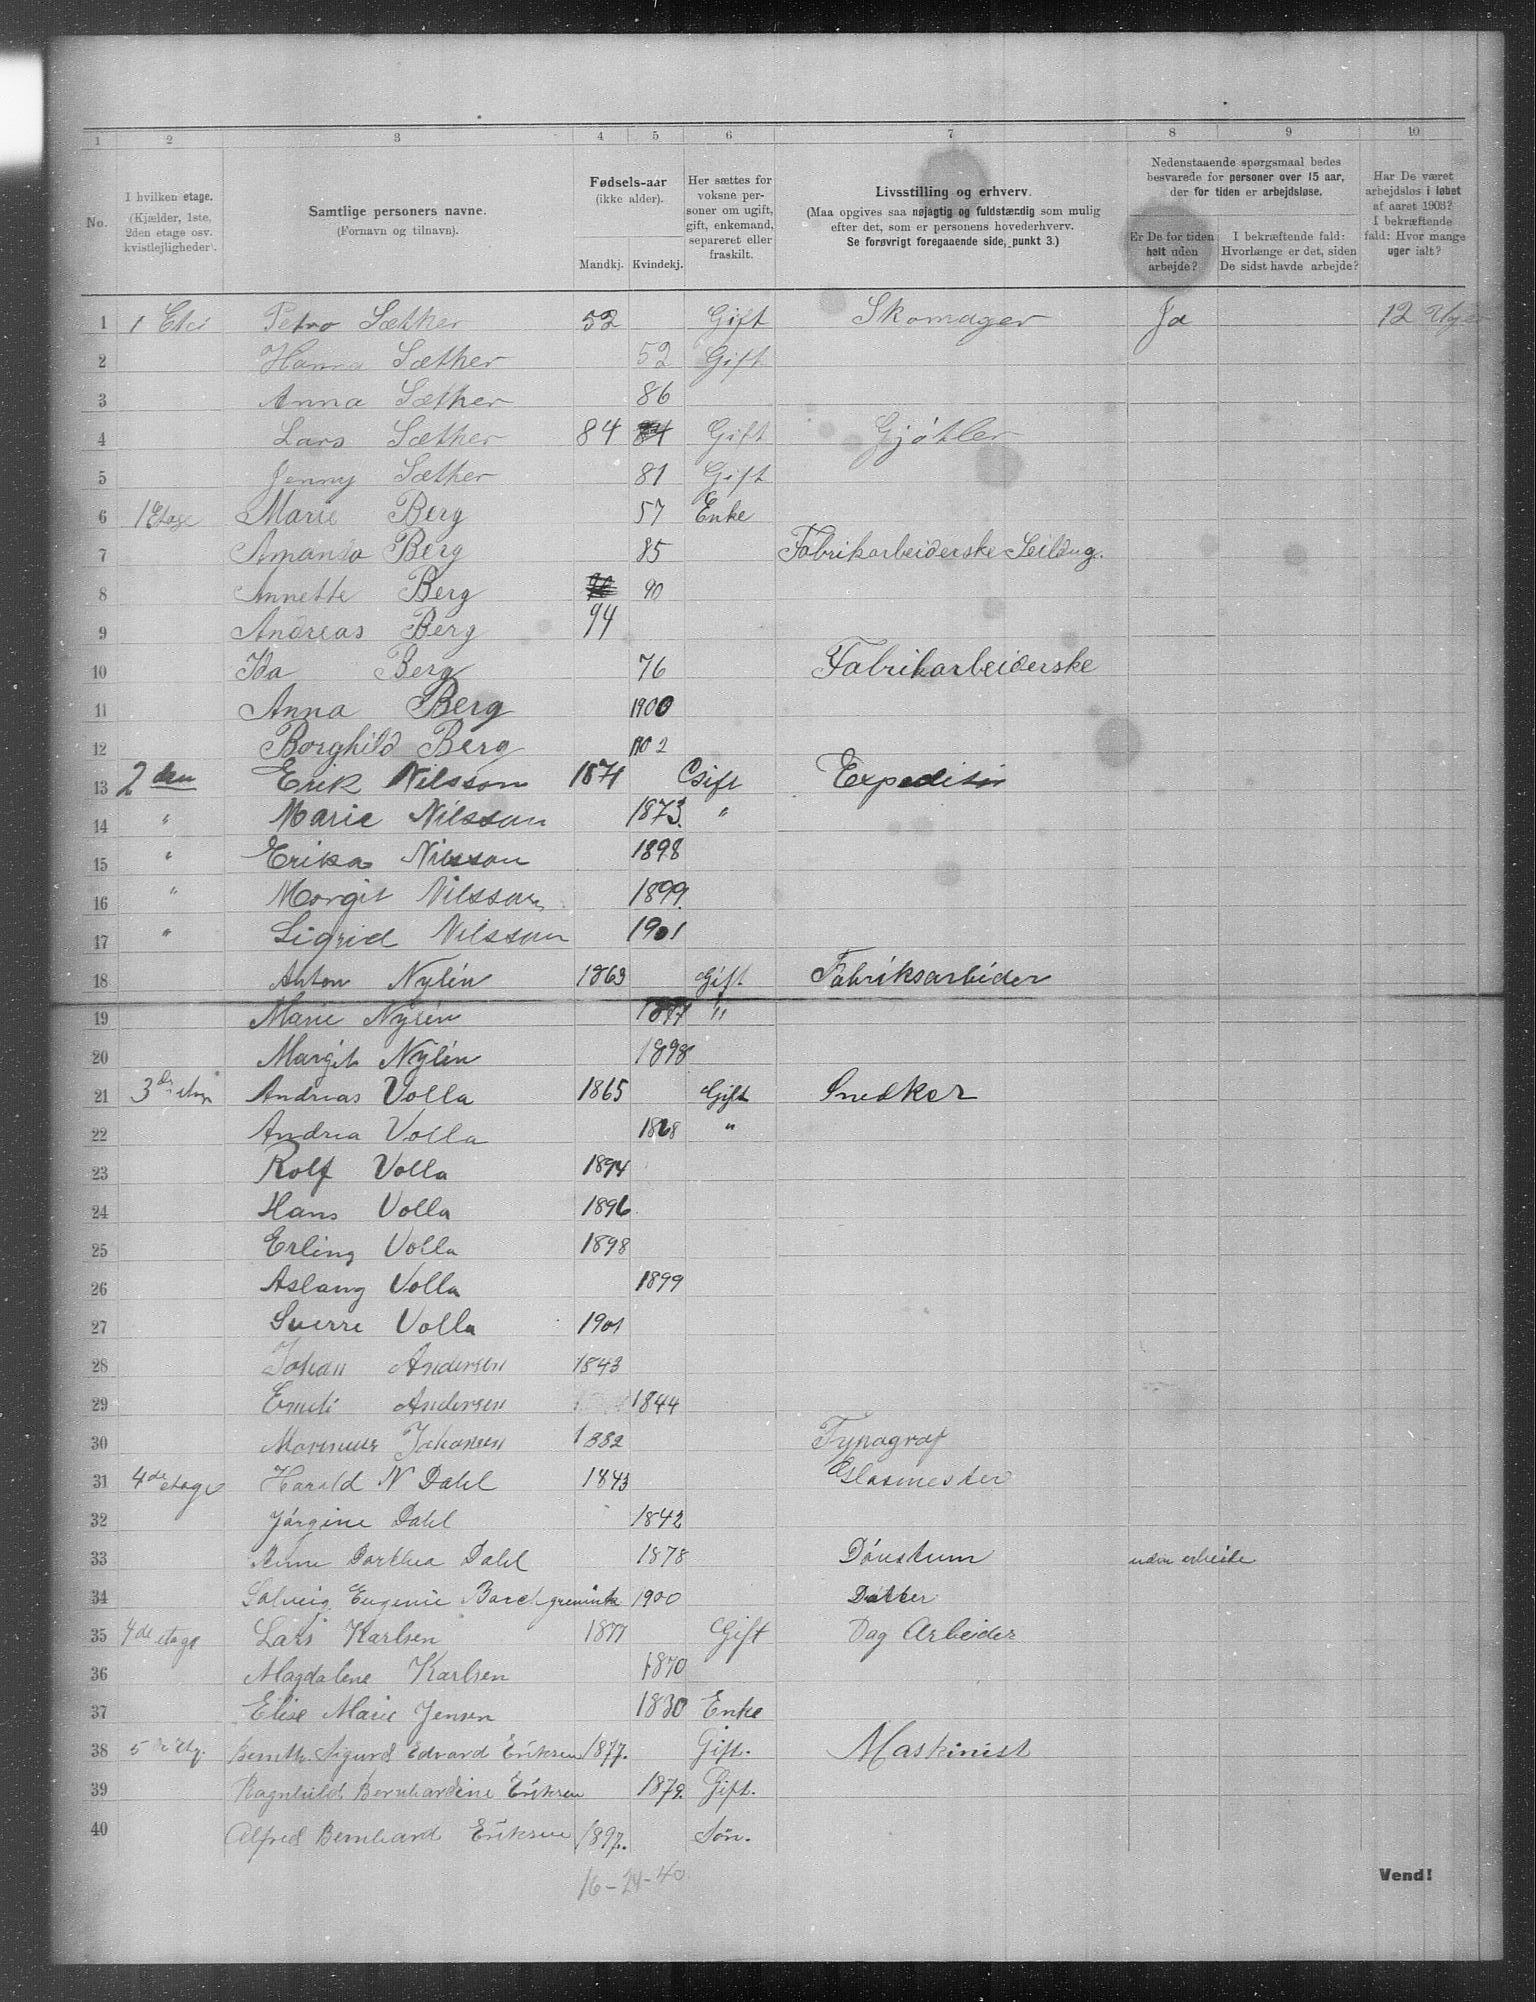 1 2 3 4 5 6 7 8 9 10
No.
I hvilken etage. (Kjælder, 1ste, 2den etage osv. kvistlejligheder).
Samtlige personers navne. (Fornavn og tilnavn).
Fødsels-aar (ikke alder). Mandkj. Kvindekj.
Her sættes for voksne personer om ugift, gift, enkemand, separeret eller fraskilt.
Livsstilling og erhverv. (Maa opgives saa nøjagtig og fuldstærdig som mulig efter det, som er personens hovederhverv. Se forøvrigt foregaaende side, punkt 3.)
Nedenstaaende spørgsmaal bedes besvarede for personer over 15 aar, der for tiden er arbejdsløse.
Er De for tiden helt uden arbejde?
I bekræftende fald: Hvorlænge er det, siden De sidst havde arbejde?
Har De været arbejdsløs i løbet af aaret 1903? I bekræftende fald: Hvor mange uger ialt?
1 1 Petro Sæther 52 Gift Skomager Ja 12
2 Hanna Sæther 52 Gift
3 Anna Sæther 86
4 Lars Sæther 84 84 Gift Gjøtler
5 Jenny Sæther 81 Gift
6 1 Etage Marie Berg 57 Enke
7 Amanda Berg 85 Fabrikarbeiderske Seildug.
8 Annette Berg 90
9 Andreas Berg 94
10 Ida Berg 76 Fabrikarbeiderske
11 Anna Berg 1900
12 Borghild Berg 1902
13 2den Erik Nilsson 1871 Gift Expeditør
14 " Marie Nilsson 1873. "
15 " Erika Nilsson 1898
16 " Margit Nilsson 1899.
17 " Sigrid Nilsson 1901
18 Anton Nylén 1863 Gift Fabriksarbeider
19 Marie Nylén 1877 "
20 Margit Nylén 1898
21 3de Andreas Volla 1865 Gift Snedker
22 Andrea Volla 1868 "
23 Rolf Volla 1894
24 Hans Volla 1896
25 Erling Volla 1898
26 Aslaug Volla 1899
27 Sverre Volla 1901
28 Johan Andersen 1843
29 Emeli Andersen 1844
30 Marinius Johansen 1882 Typograf
31 4de etage Harald N Dahl 1843 Glasmester
32 Jørgine Dahl 1842
33 Anne Dorthea Dahl 1878 uden arbeide
34 Solveig Eugenie Borchgrevink 1900 Datter
35 4de etage Lars Karlsen 1877 Gift Dag Arbeider
36 Magdalene Karlsen 1870
37 Elise Marie Jensen 1830 Enke
38 5 Bernth. Sigurd Edvard Eriksen 1877. Gift. Maskinist
39 Ragnhild Bernhardine Eriksen 1879. Gift.
40 Alfred Bernhard Eriksen 1897. Søn.
16-24-40
Vend!